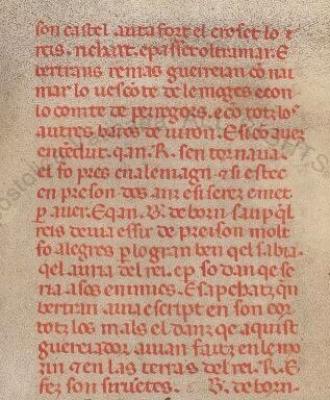 son castel auta fort el croset lo
reis. richart. e passet oltra mar. E
bertrans remas guerreian cō nai
mar lo vescōte de lemoges e con
lo comte de peiregors. e cō totz los
autres baros de uiron. E si cō auez
entēdut. qan. R. sen tornaua
el fo pres en alemaingn. e si estec
en preison dos anz e si serez emet
p auer. E qan. B. de born saup ql
reis deuia essir de preison molt
fo alegres p lo gran ben qel sabia.
qel auria del rei. e p so dan qe se
ria a sos enimics. E sapchatz qn
bertran auia escript en son cor
totz los mals el danz qe aquist
guereiador. auian faitz en lemo
zin e en las terras del rei. R. E
fez son siruētes. B. de born.